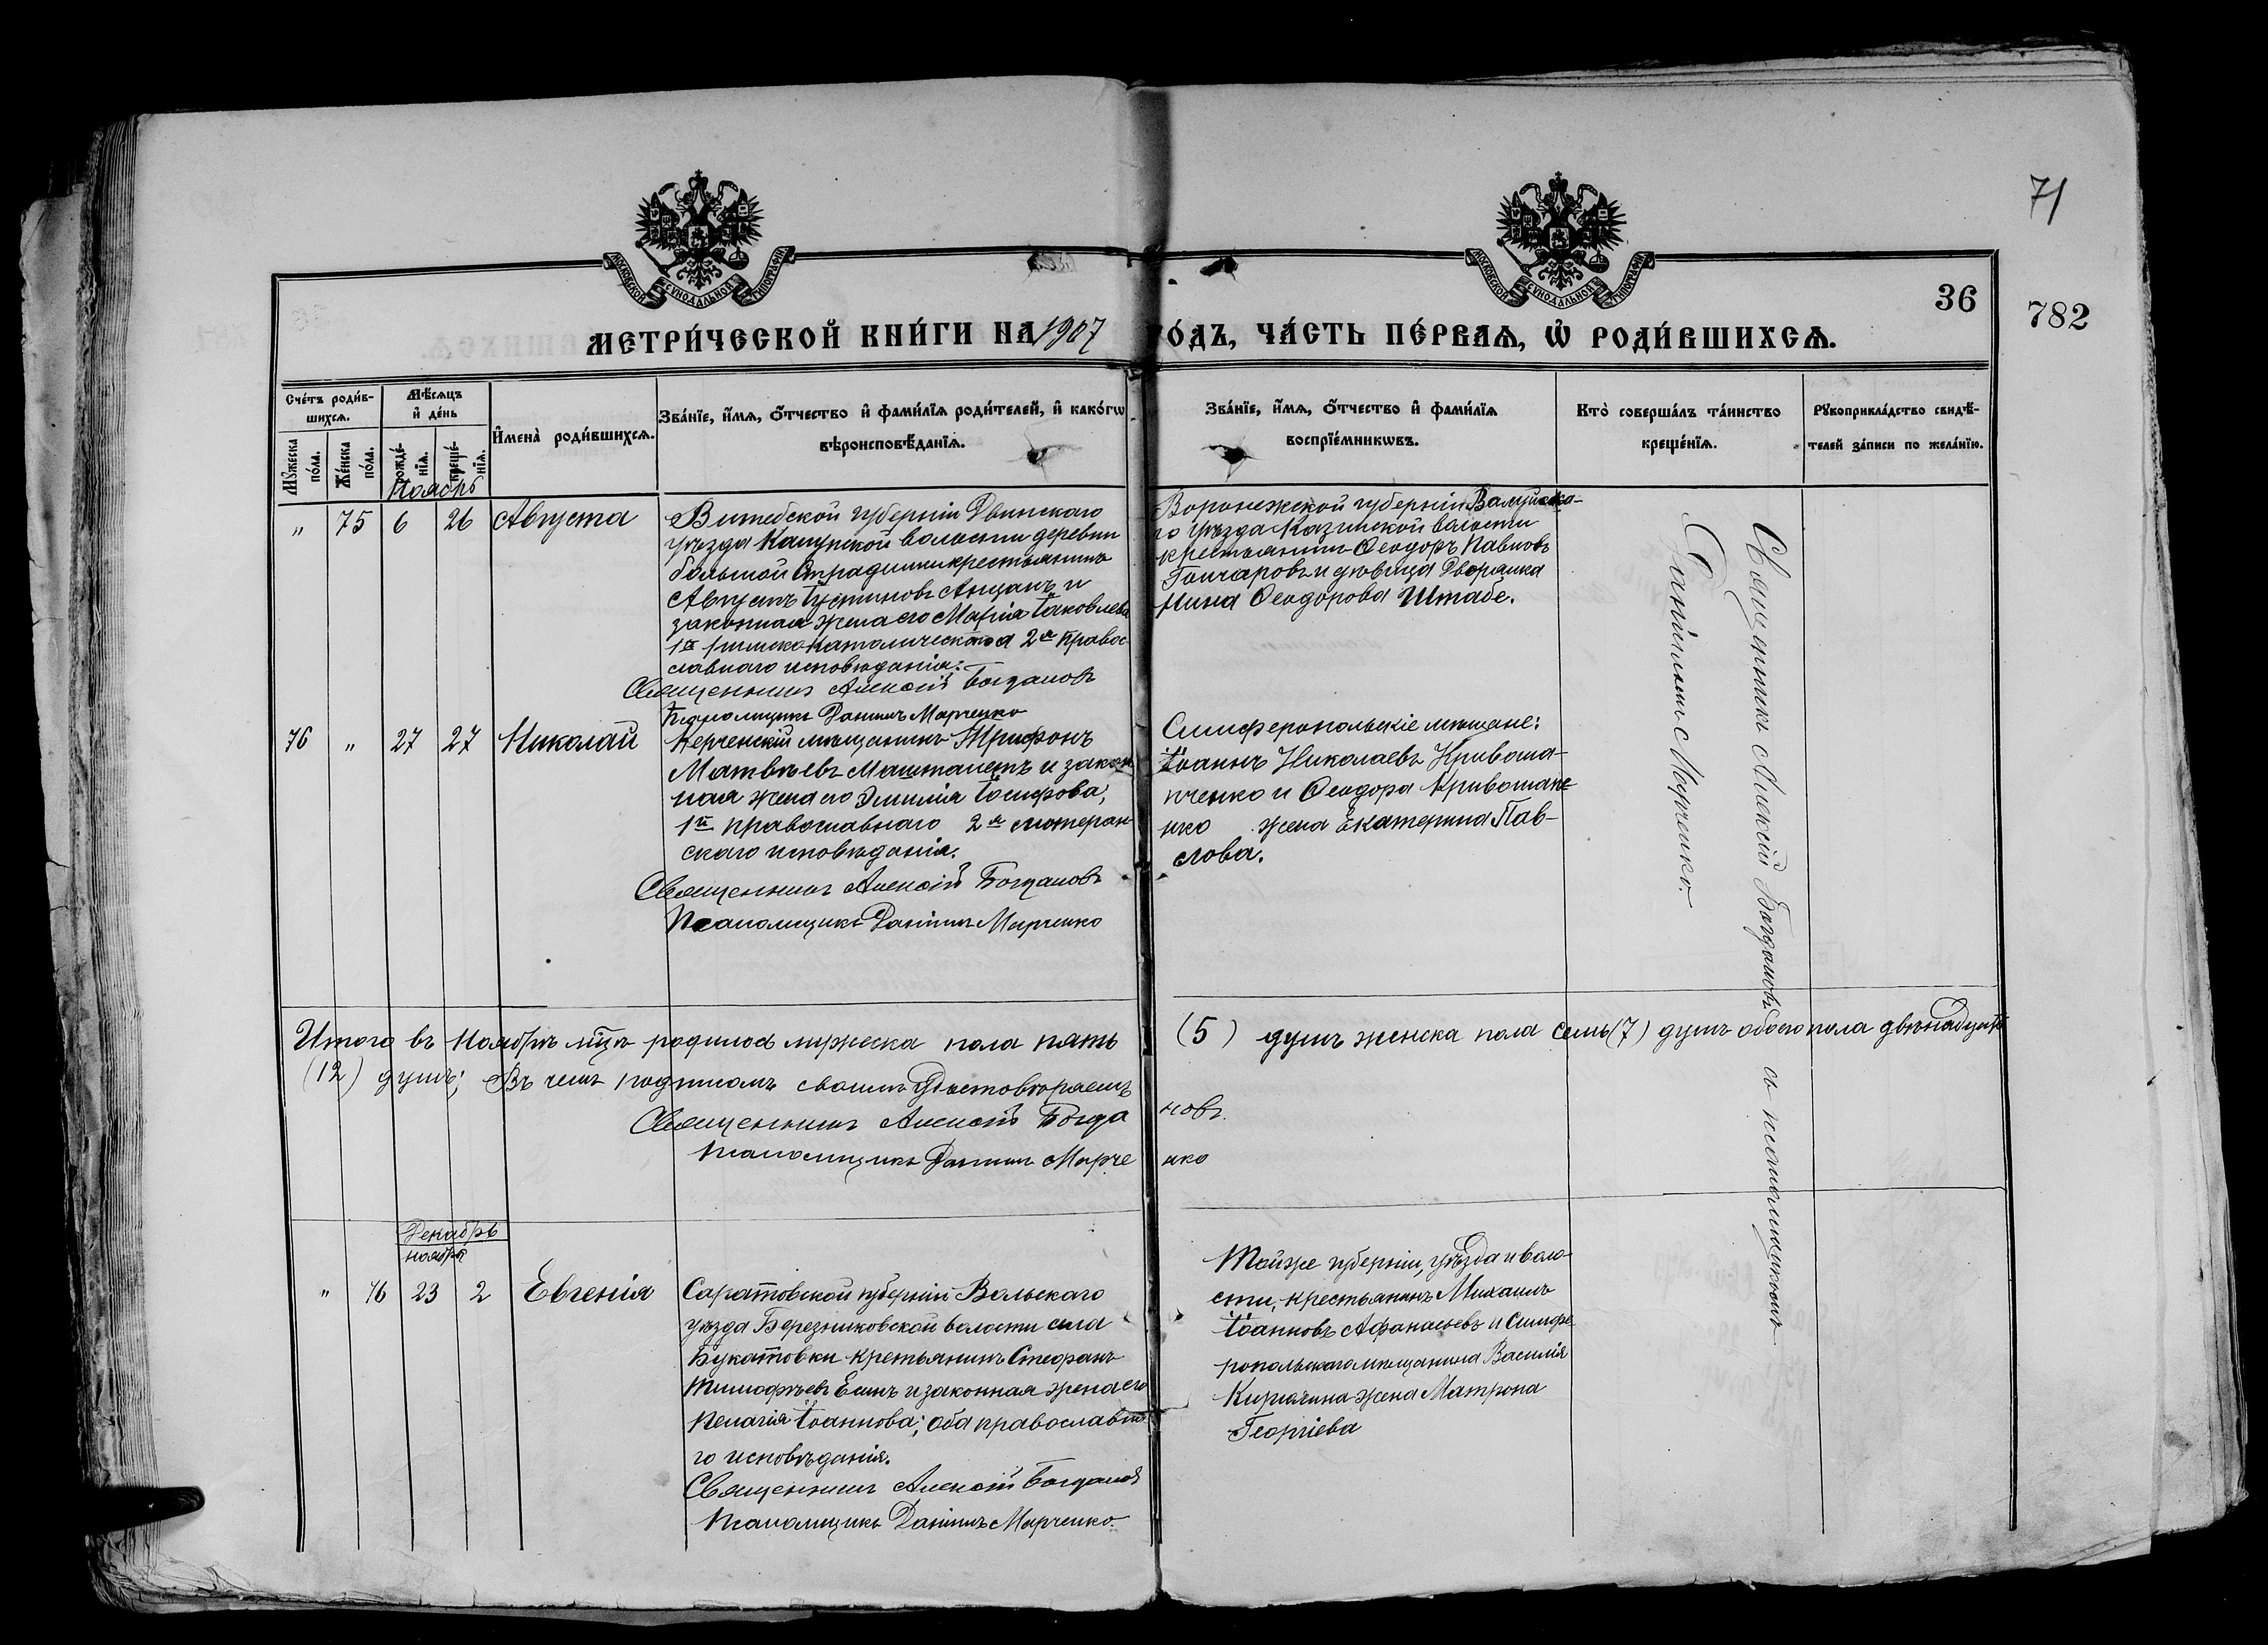 71
36
782
МОСКОВСКОЙ СѴНОДАЛЬНОЙ ТИПОГРАФІИ
МОСКОВСКОЙ СѴНОДАЛЬНОЙ ТИПОГРАФІИ
МЕТРИ́ЧЕСКОЙ КНИ́ГИ НА 1907 ГО́ДЪ, ЧА́СТЬ ПЕ́РВАѦ, Ѡ҆ РОДИ́ВШИХСѦ.
Сче́тъ роди́в-
шихсѧ.
Мѹ́жеска
по́ла.
Же́нска
по́ла.
Мѣ́сѧцъ
и҆ де́нь
рожде́-
нїѧ.
креще́-
нїѧ.
И҆мена̀ роди́вшихсѧ.
Зва́нїе, и҆́мѧ, ѻ҆́тчество и҆ фами́лїѧ роди́телей, и҆ како́гѡ
вѣроисповѣ́данїѧ.
Зва́нїе, и҆́мѧ, ѻ҆́тчество и҆ фами́лїѧ
воспрїе́мникѡвъ.
Кто̀ соверша́лъ та́инство
креще́нїѧ.
Рꙋкоприкла́дство свидѣ́-
телей за́писи по жела́нїю.
Ноябрь
" 75 6 26 Августа
Витебской губерніи Двинскаго
уѣзда Капунской волости деревни
большой крестьянинъ
Августъ Іустиновъ и
законная жена его Марія Іаковлева
1й римско католическаго а 2я Правос-
славнаго исповѣданія:
Священникъ Алексій Богдановъ
Псаломщикъ Даніилъ Марченко
Воронежской губерніи Валуйска-
го уѣзда Казинской волости
крестьянинъ Ѳеодоръ Павловъ
Гончаровъ и дѣвица Дворянка
Нина Ѳеодорова Штабе.
Священникъ Алексій Богдановъ съ псаломщикомъ
Даніиломъ Марченко.
76 " 27 27 Николай
Керченскій мѣщанинъ Трифонъ
Матвѣевъ Машталеръ и закон
ная жена его Эмилія Іосифова,
1й православнаго 2я лютеран-
скаго исповѣданія.
Священникъ Алексій Богдановъ
Псаломщикъ Даніилъ Марченко
Симферопольскіе мѣщане:
Іоаннъ Николаевъ Кривоша-
пченко и Ѳеодора Кривошапче-
нко жена Екатерина Пав-
лова.
Итого въ Ноябрѣ мцѣ родилось мужеска пола пять (5) душъ женска пола семь (7) душъ обоего пола двѣнадцать
(12) душъ; Въ чемъ подписомъ своимъ Удостовѣряемъ
Священникъ Алексій Богдановъ.
Псаломщикъ Даніилъ Марченко
Декабрь
ноября
" 76 23 2 Евгенія
Саратовской губерніи Вольскаго
уѣзда Березниковской волости села
Букатовки крестьянинъ Стефанъ
Тимофѣевъ Есинъ и законная жена его
Пелагія Іоаннова; оба православна-
го исповѣданія.
Священникъ Алексій Богдановъ
Псаломщикъ Даніилъ Марченко.
Тойже губерніи, уѣзда и воло-
сти, крестьянинъ Михаилъ
Іоанновъ Афанасьевъ и Симфе-
ропольскаго мѣщанина Василія
жена Матрона
Георгіева